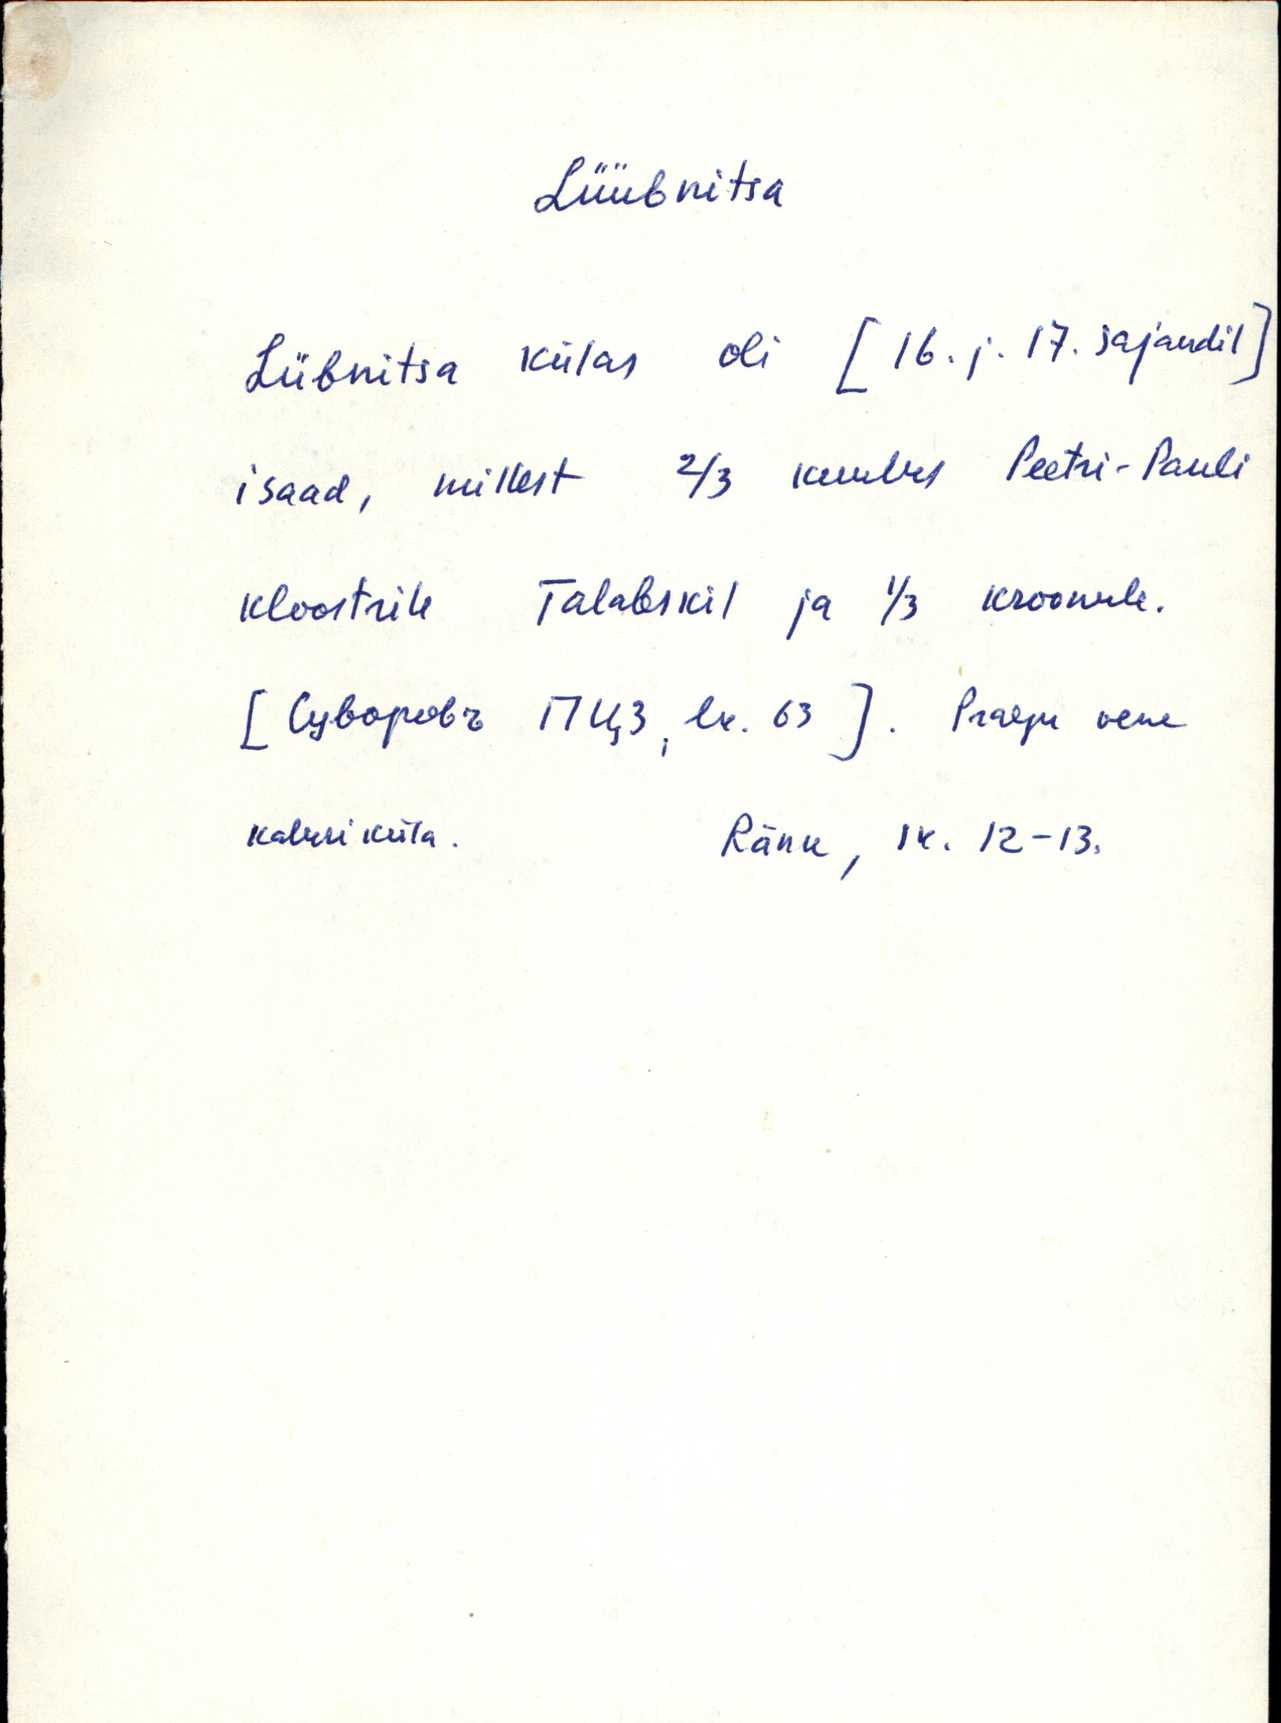 Lüübnitsa
Lübnitsa külas oli [16. j. 17. sajandil]
isaad, millest 2/3 kuulus Peetri-Pauli
kloostrile Talabskil ja 1/3 kroonule.
[Суворовъ ПЦЗ, lk. 63]. Praegu vene
kaluri küla. Ränk, lk. 12-13.